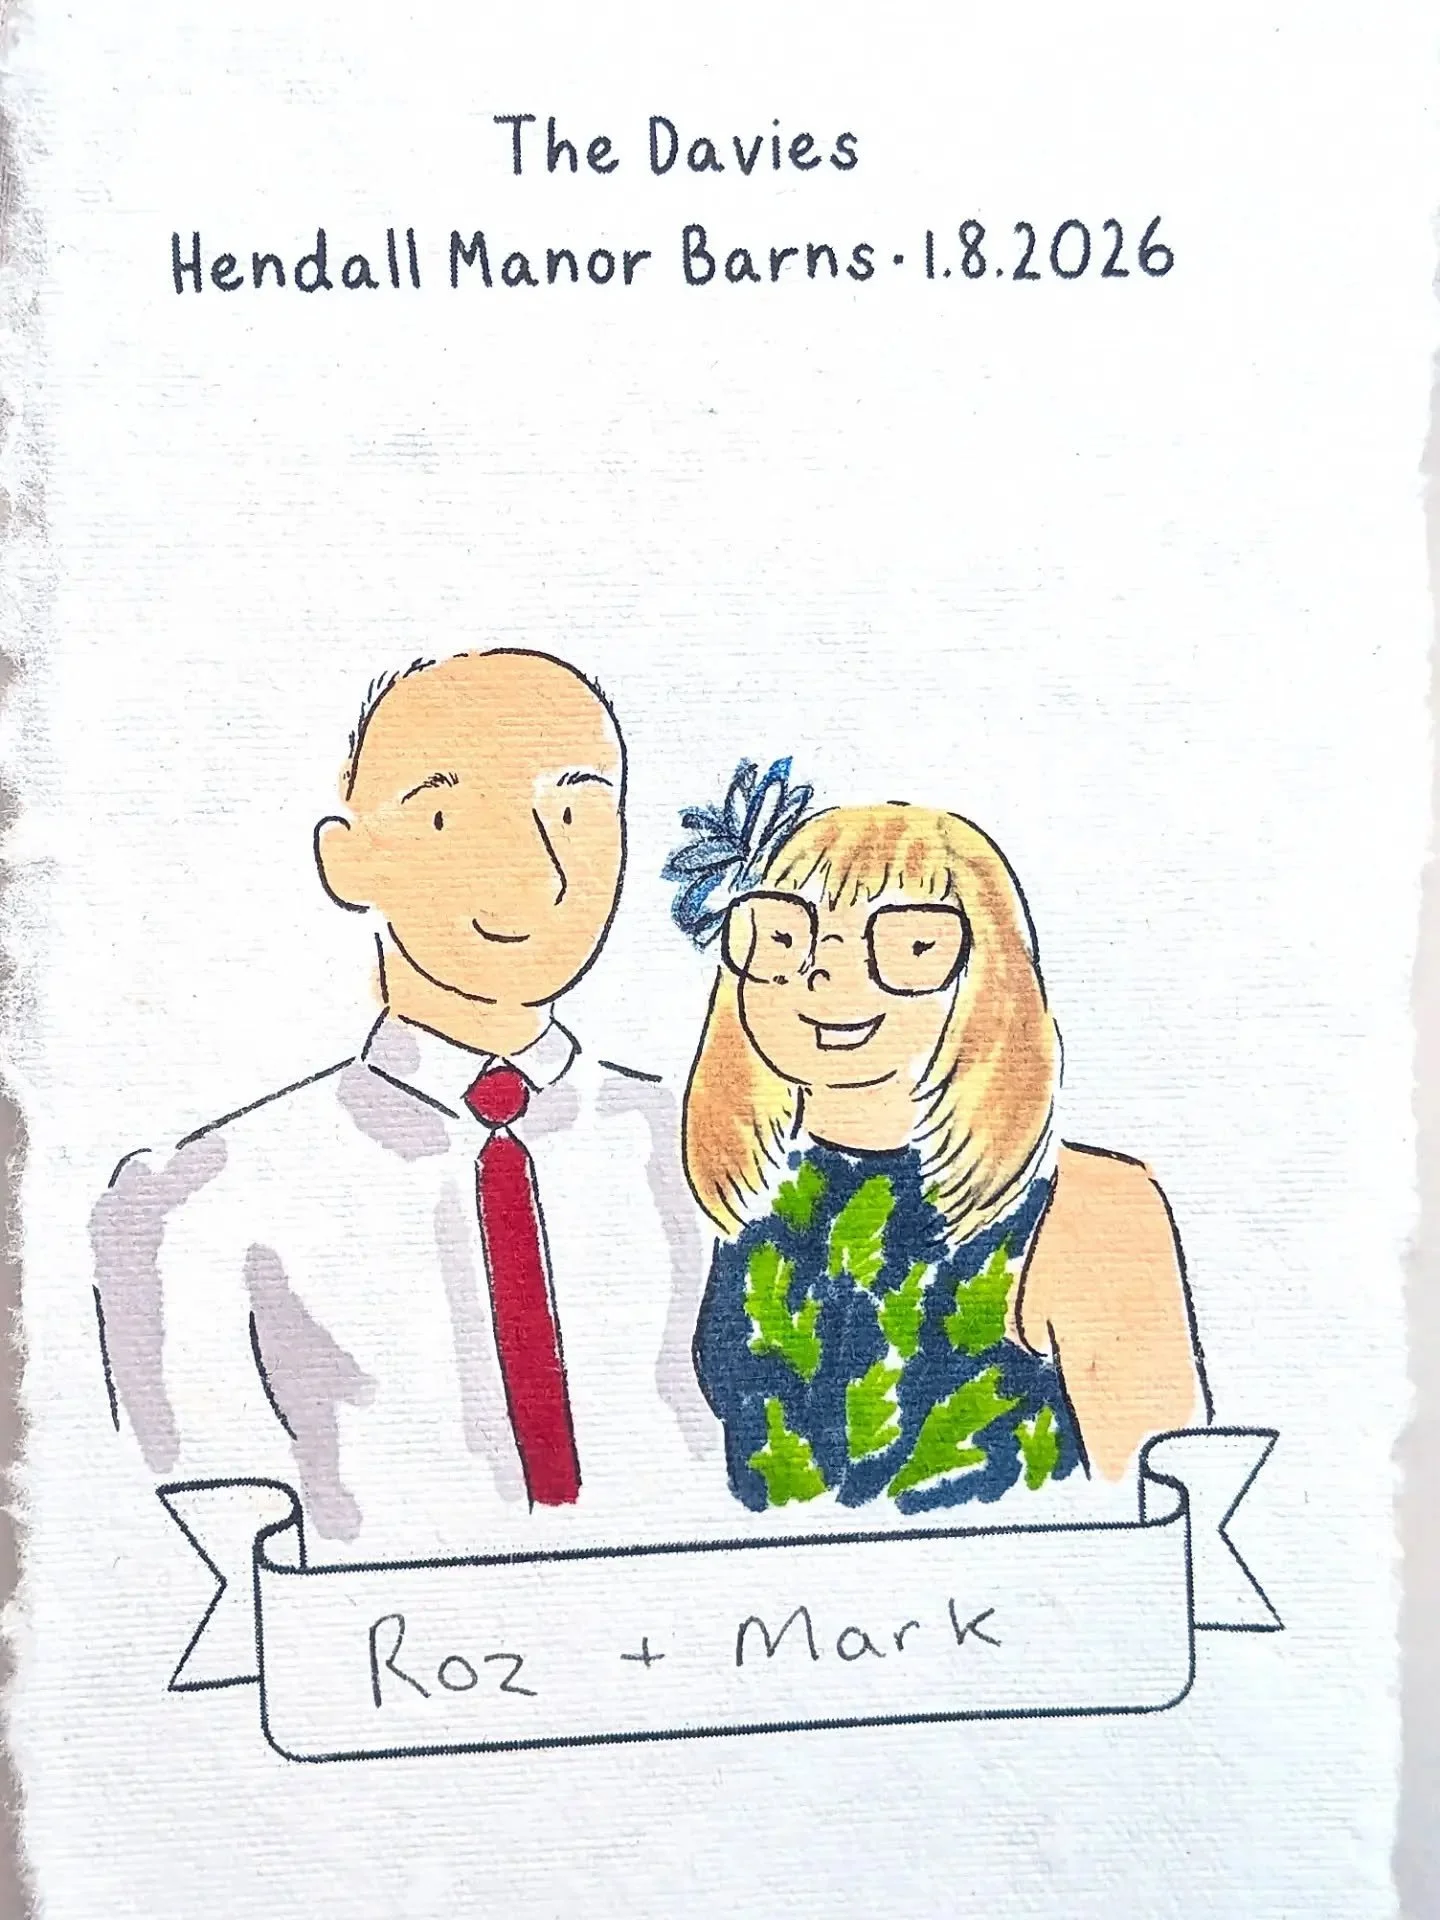 The Davies
Hendall Manor Barns · 1.8.2026
Roz + Mark